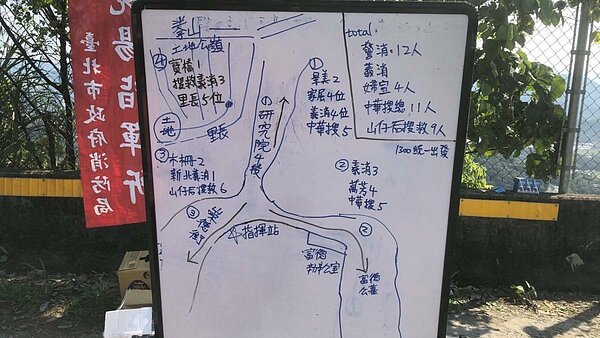 現場指揮所
臺北市政府消防局
total:
警消:12人
義消
婦宣4人
中華搜總11人
山仔后搜救9人
1300統一出發
土地公嶺
④
寶橋1
搜救義消3
里長5位
土地
①
景美2
家屬4位
義消4位
中華搜5
研究院
4發
③
木柵-2
新北義消1
山仔后搜救6
②
義消3
萬芳4
中華搜5
③
指揮站
②
富德
辦公室
富德
公墓